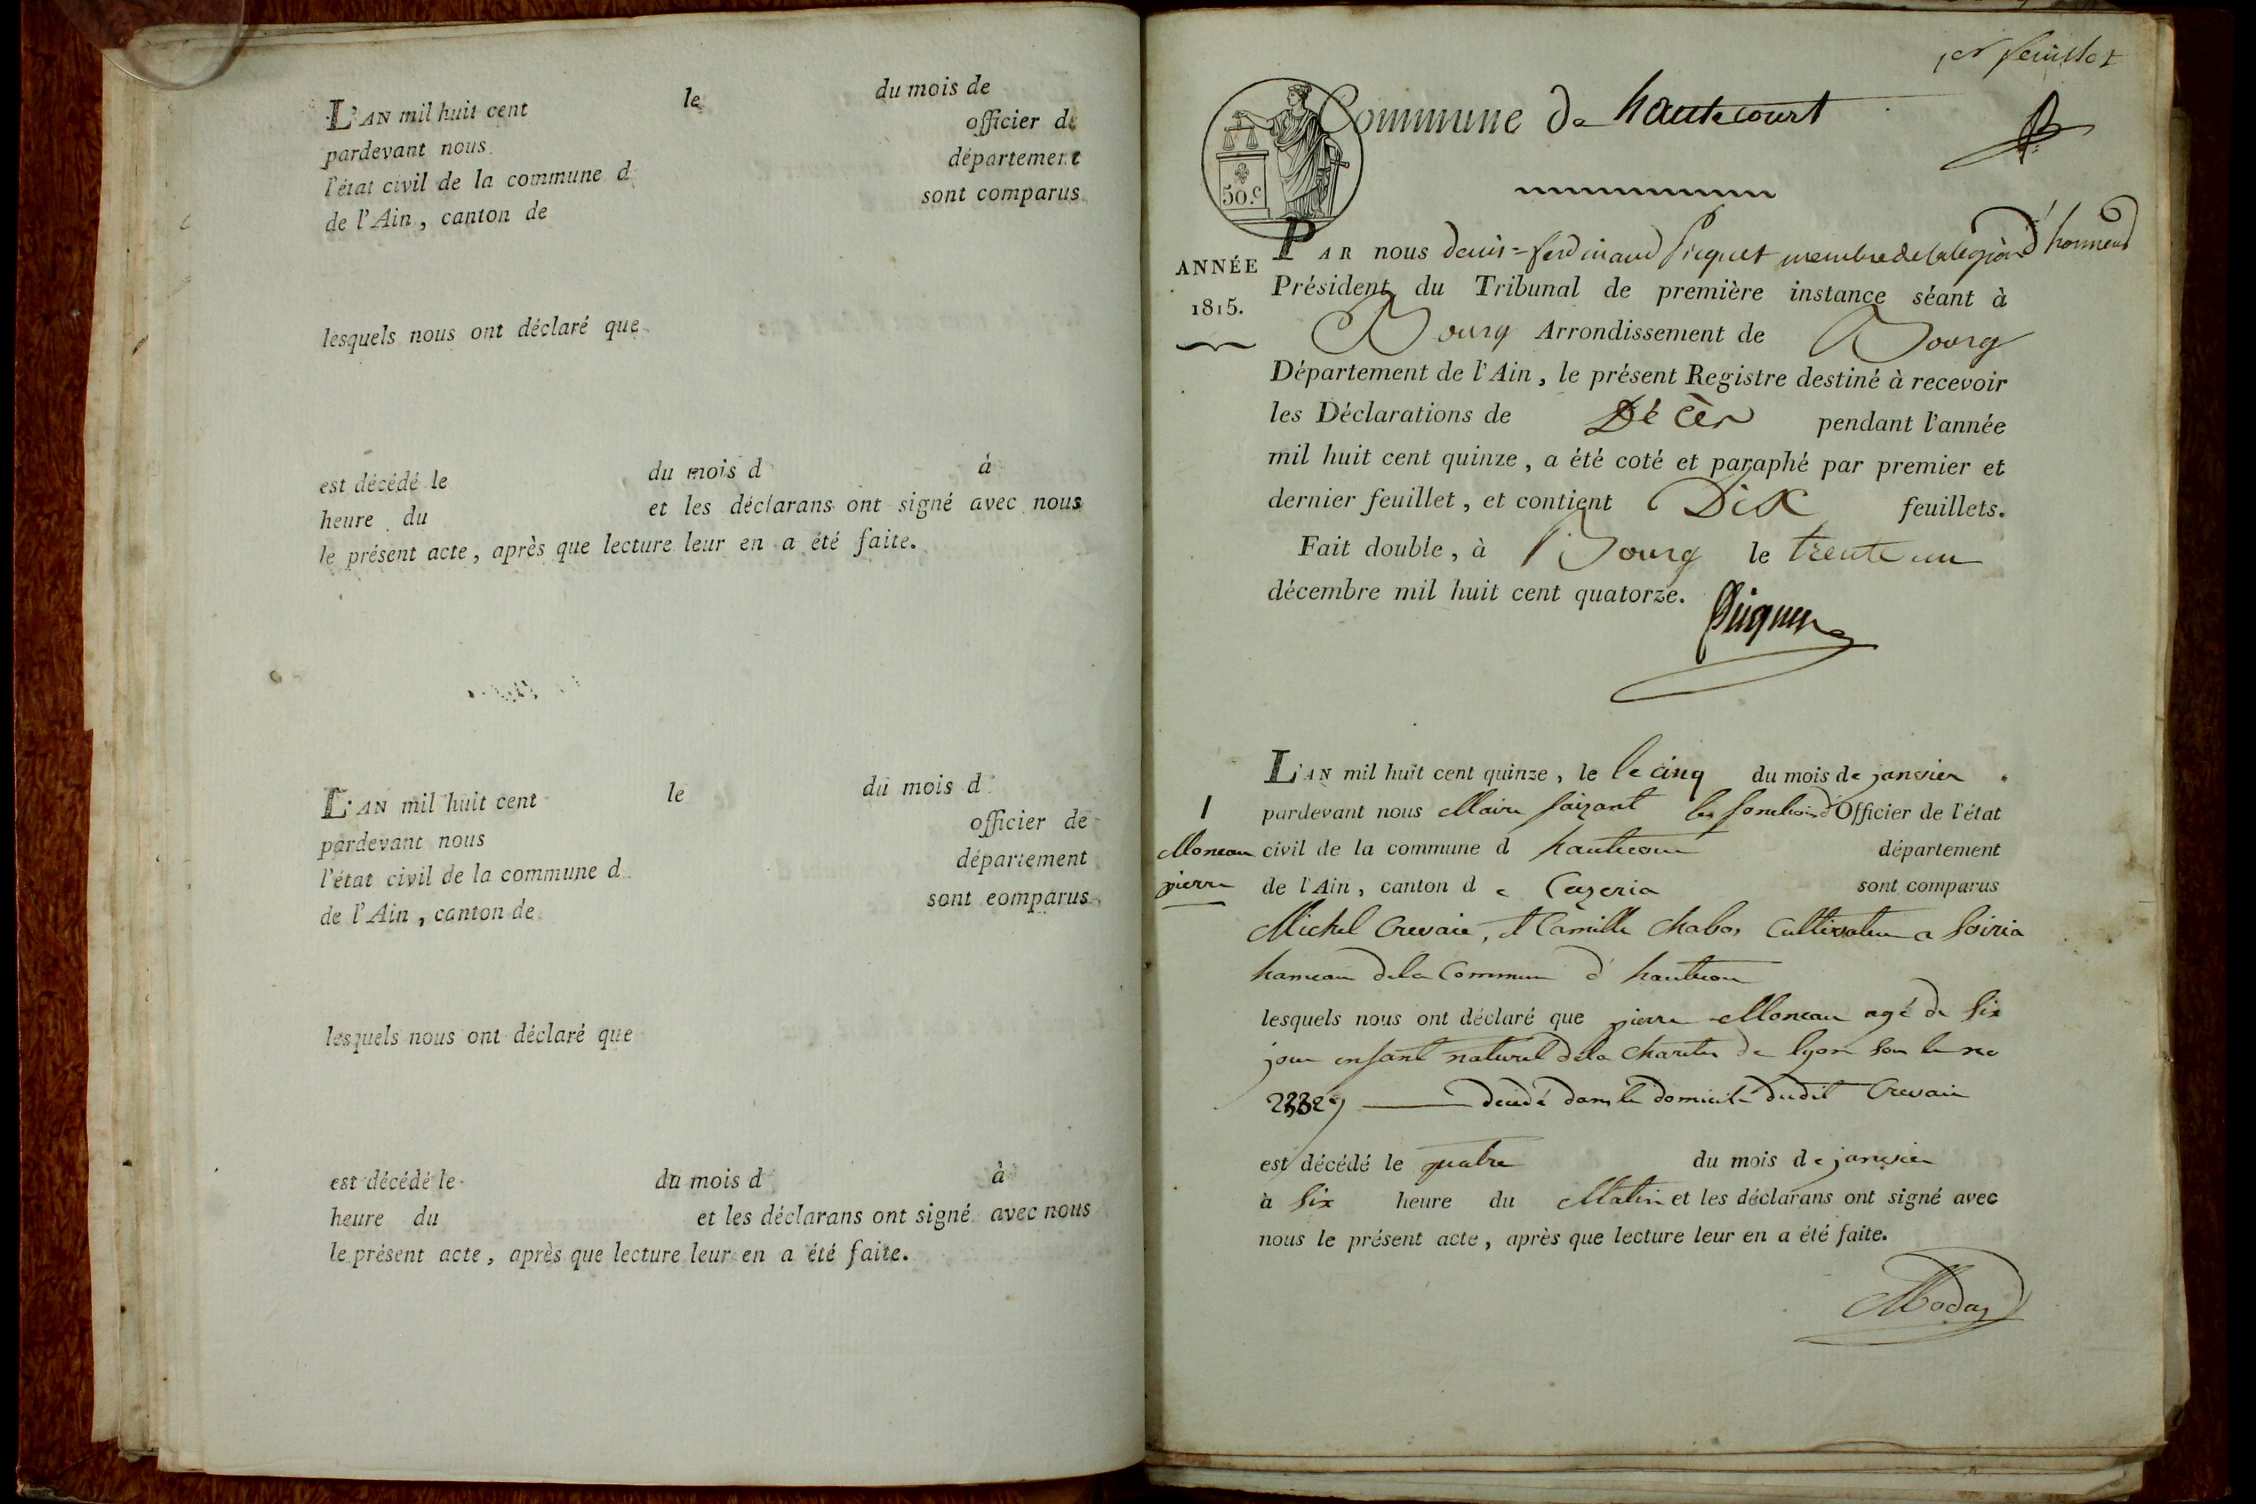 L'AN mil huit cent le du mois de
pardevant nous officier de
l'état civil de la commune d département
de l'Ain, canton de sont comparus
lesquels nous ont déclaré que
est décédé le du mois d à
heure du et les déclarans ont signé avec nous
le présent acte, après que lecture leur en a été faite.
L'AN mil huit cent le du mois d
pardevant nous officier de
l'état civil de la commune d département
de l'Ain, canton de sont comparus
lesquels nous ont déclaré que
est décédé le du mois d à
heure du et les déclarans ont signé avec nous
le présent acte, après que lecture leur en a été faite.
1er feuillet
Commune de hautecourt
50.c
ANNÉE
1815.
PAR nous denis=ferdinand Picquet membre de la legion d'honneur
Président du Tribunal de première instance séant à
Bourg Arrondissement de Bourg
Département de l'Ain, le présent Registre destiné à recevoir
les Déclarations de Décès pendant l'année
mil huit cent quinze, a été coté et paraphé par premier et
dernier feuillet, et contient Dix feuillets.
Fait double, à Bourg le trente un
décembre mil huit cent quatorze.
Picquet
1
Moneau
pierre
L'AN mil huit cent quinze, le le cinq du mois de janvier
pardevant nous Maire faizant les fonctions d'Officier de l'état
civil de la commune d hautecour département
de l'Ain, canton de Cezeria sont comparus
Michel Crevaie, et Camille Chabos Cultivateur a Soiria
hameau de la Commune d' hautecour
lesquels nous ont déclaré que pierre Moneau agé de six
jour enfant naturel de la charite de lyon sou le no
decédé dans le domicile dudit Crevaie
est décédé le quatre du mois de janvier
à six heure du Matin et les déclarans ont signé avec
nous le présent acte, après que lecture leur en a été faite.